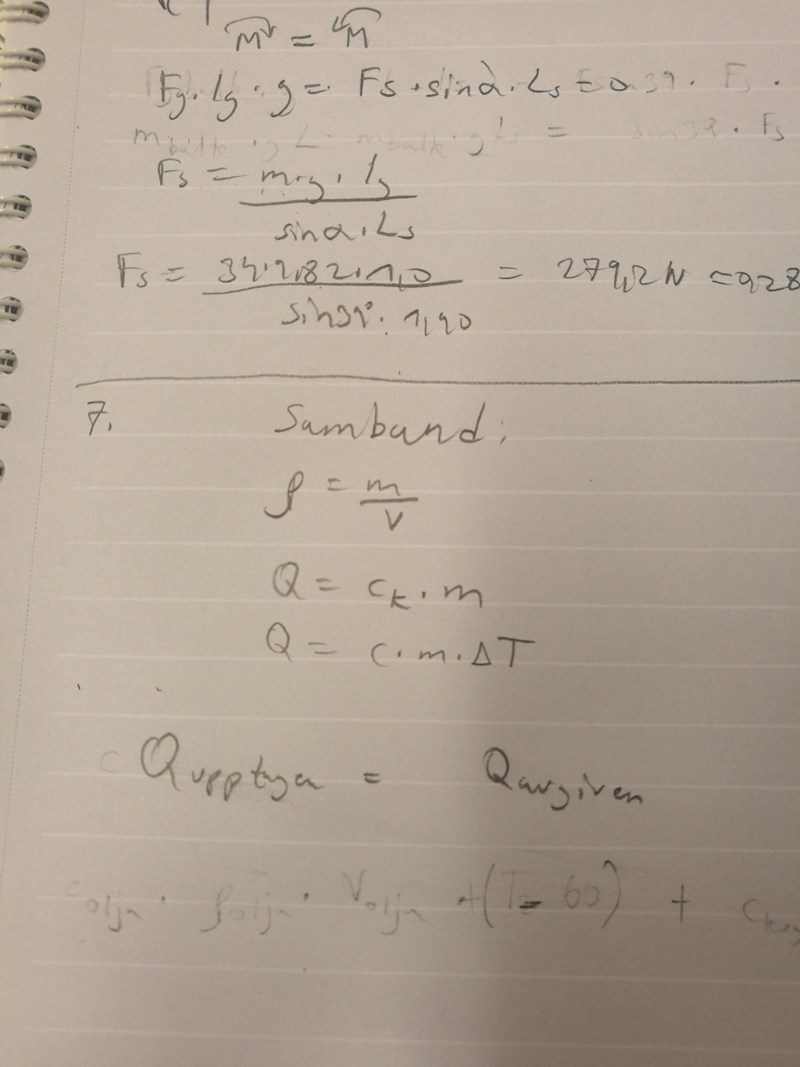 M = M
Fg · lg · g = Fs · sinα · Ls = 0
39 · Fs ·
m balk · g L · m balk · g Ls = sin39 · Fs
Fs = m·g · lg / sinα · Ls
Fs = 34·9,82·1,0 / sin39° · 1,90 = 279,2N = 0,28
7. Samband;
ρ = m / V
Q = ck · m
Q = c · m · ΔT
Qupptagen = Qavgiven
colja · ρolja · Volja · (T - 60) +